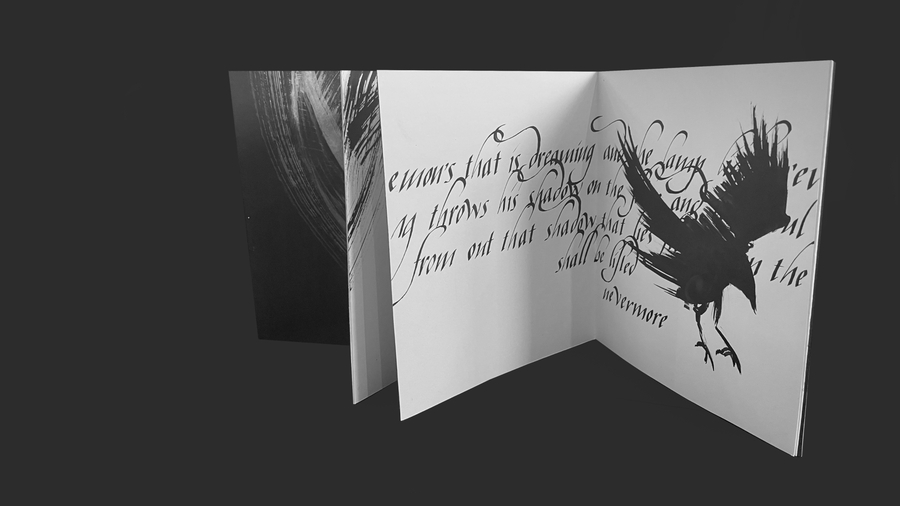 that is dreaming and the lamp
throws his shadow on the and
from out that shadow that lies
shall be lifted the
nevermore